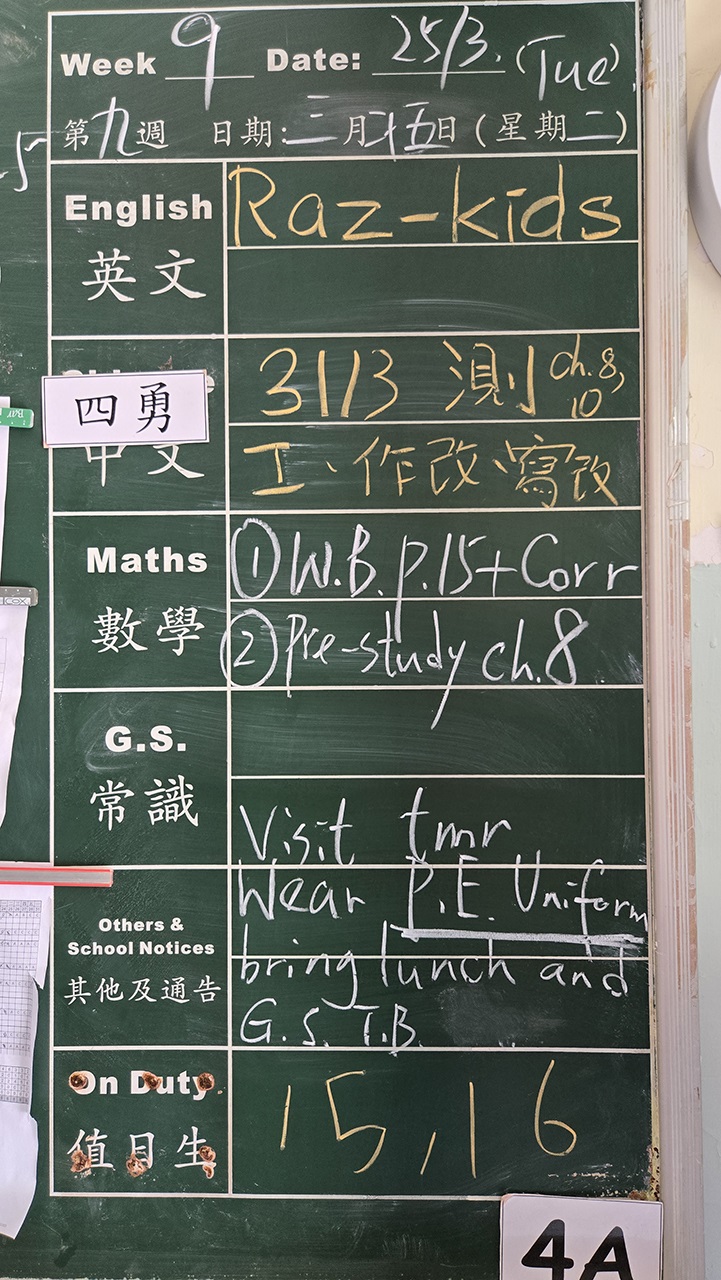 Week 9 Date: 25/3. (Tue)
第九週 日期:三月廿五日(星期二)
English
英文
Raz-kids
四勇
中文
31/3 測 ch.8, 10
工、作改、寫改
Maths
數學
①W.B. p.15+Corr
②Pre-study ch.8
G.S.
常識
Visit tmr
Others &
School Notices
其他及通告
Wear P.E. Uniform
bring lunch and
G.S. T.B.
On Duty
值日生
15,16
4A